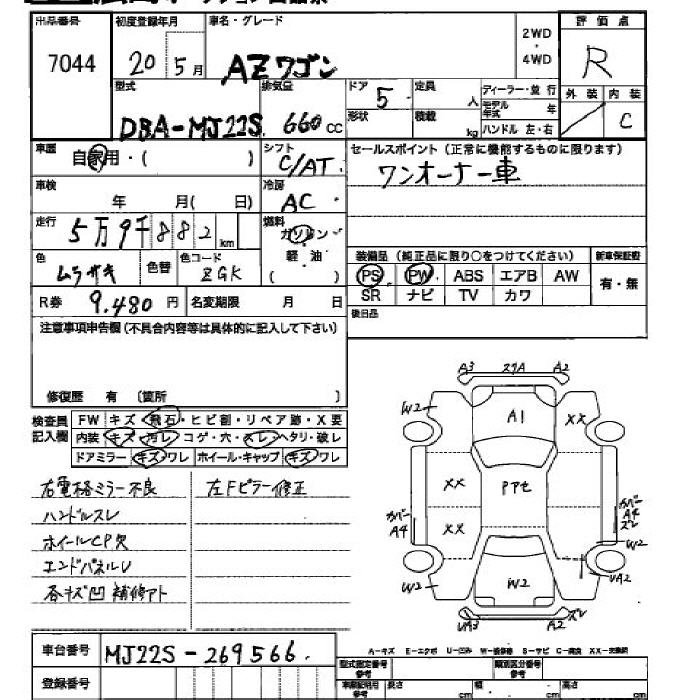 出品番号 初度登録年月 車名・グレード 2WD・4WD 評価点
7044 20年5月 AZワゴン R
型式 排気量 ドア 定員 ディーラー・並行 外装 内装
DBA-MJ22S 660cc 5 人 モデル年式 年 C
形状 積載 kg ハンドル 左・右
車歴 自家用・( ) シフト C/AT セールスポイント(正常に機能するものに限ります)
ワンオーナー車
車検 年 月( 日) 冷房 AC
走行 5万9千882km 燃料 ガソリン
軽油
( )
色 ムラサキ 色替 色コード ZGK
装備品(純正品に限り○をつけてください) 新車保証書
PS PW ABS エアB AW 有・無
SR ナビ TV カワ
R券 9,480円 名変期限 月 日 後日品
注意事項申告欄(不具合内容等は具体的に記入して下さい)
修復歴 有 〔箇所 〕
検査員記入欄 FW キズ・飛石・ヒビ割・リペア跡・X要
内装 キズ・汚レ・コゲ・穴・スレ・ヘタリ・破レ
ドアミラー キズ・ワレ ホイール・キャップ キズ・ワレ
右電格ミラー不良 左Fピラー修正
ハンドルスレ
ホイールCP欠
エンドパネルU
各キズ凹 補修アト
A3 スリA A2
W2 A1 XX
XX PPセ
カバーA4 XX カバーA4 スレ
W2
W2 W2 UA2
UA3 A2 スレ
A-キズ E-エクボ U-凹み W-補修跡 S-サビ C-腐食 XX-交換済
車台番号 MJ22S-269566.
登録番号
型式指定番号 参考 類別区分番号 参考
車庫証明用 参考 長さ cm 幅 cm 高さ cm